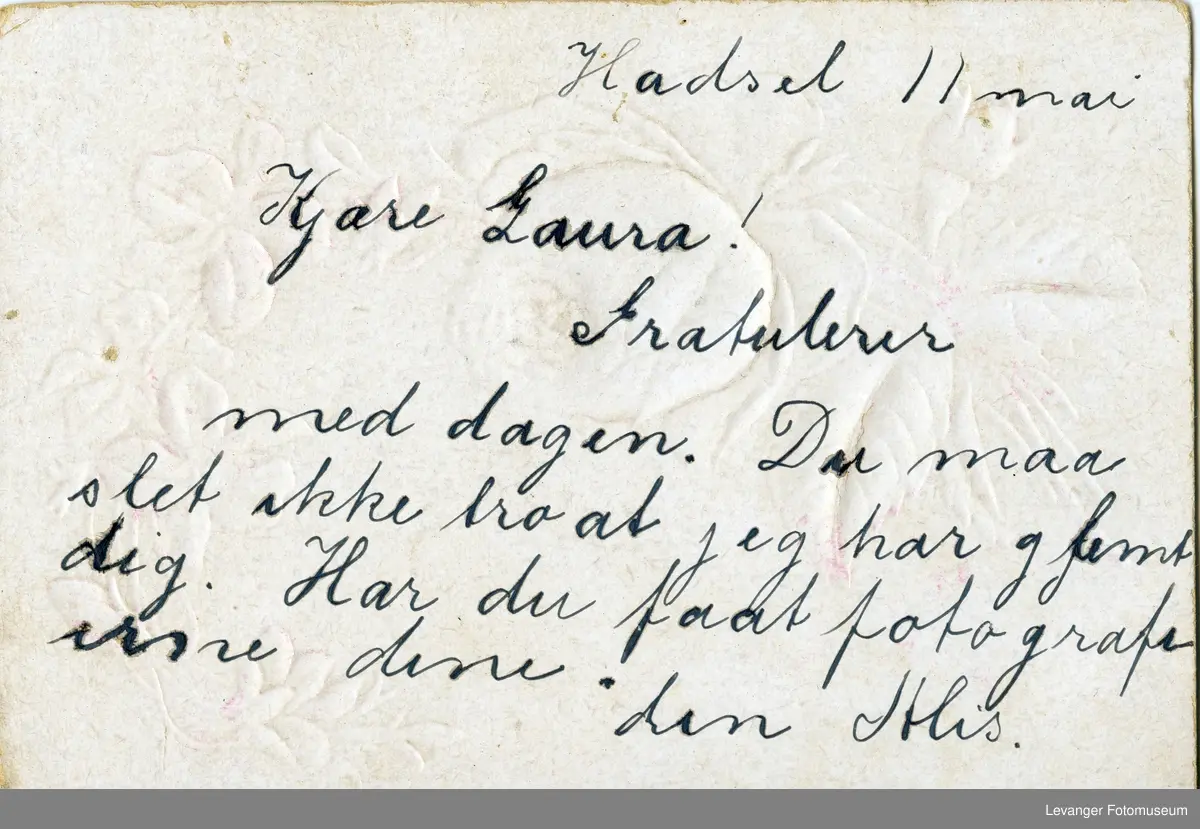 Hadsel 11 mai
Kjære Laura!
Gratulerer
med dagen. Du maa
slet ikke tro at jeg har glemt
dig. Har du faat fotografi
erne dine.
din Alis.
Levanger Fotomuseum